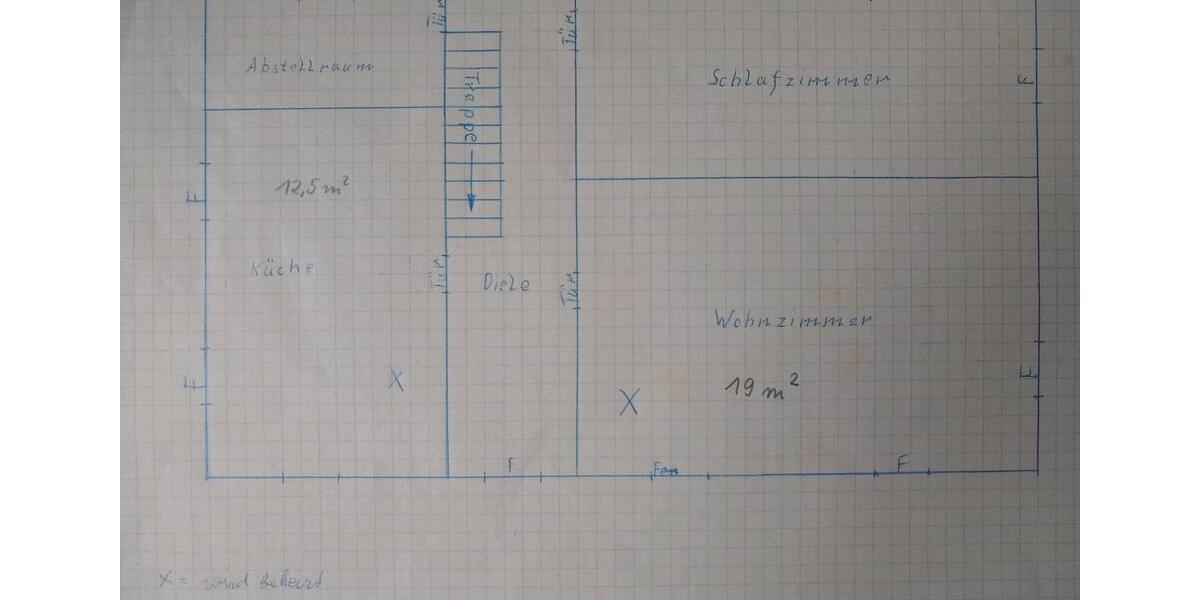 Tür
Tür
Abstellraum
Treppe
Schlafzimmer
F
12,5 m²
F
Küche
Tür
Diele
Tür
Wohnzimmer
F
F
X
X
19 m²
F
F
X = wird beheizt